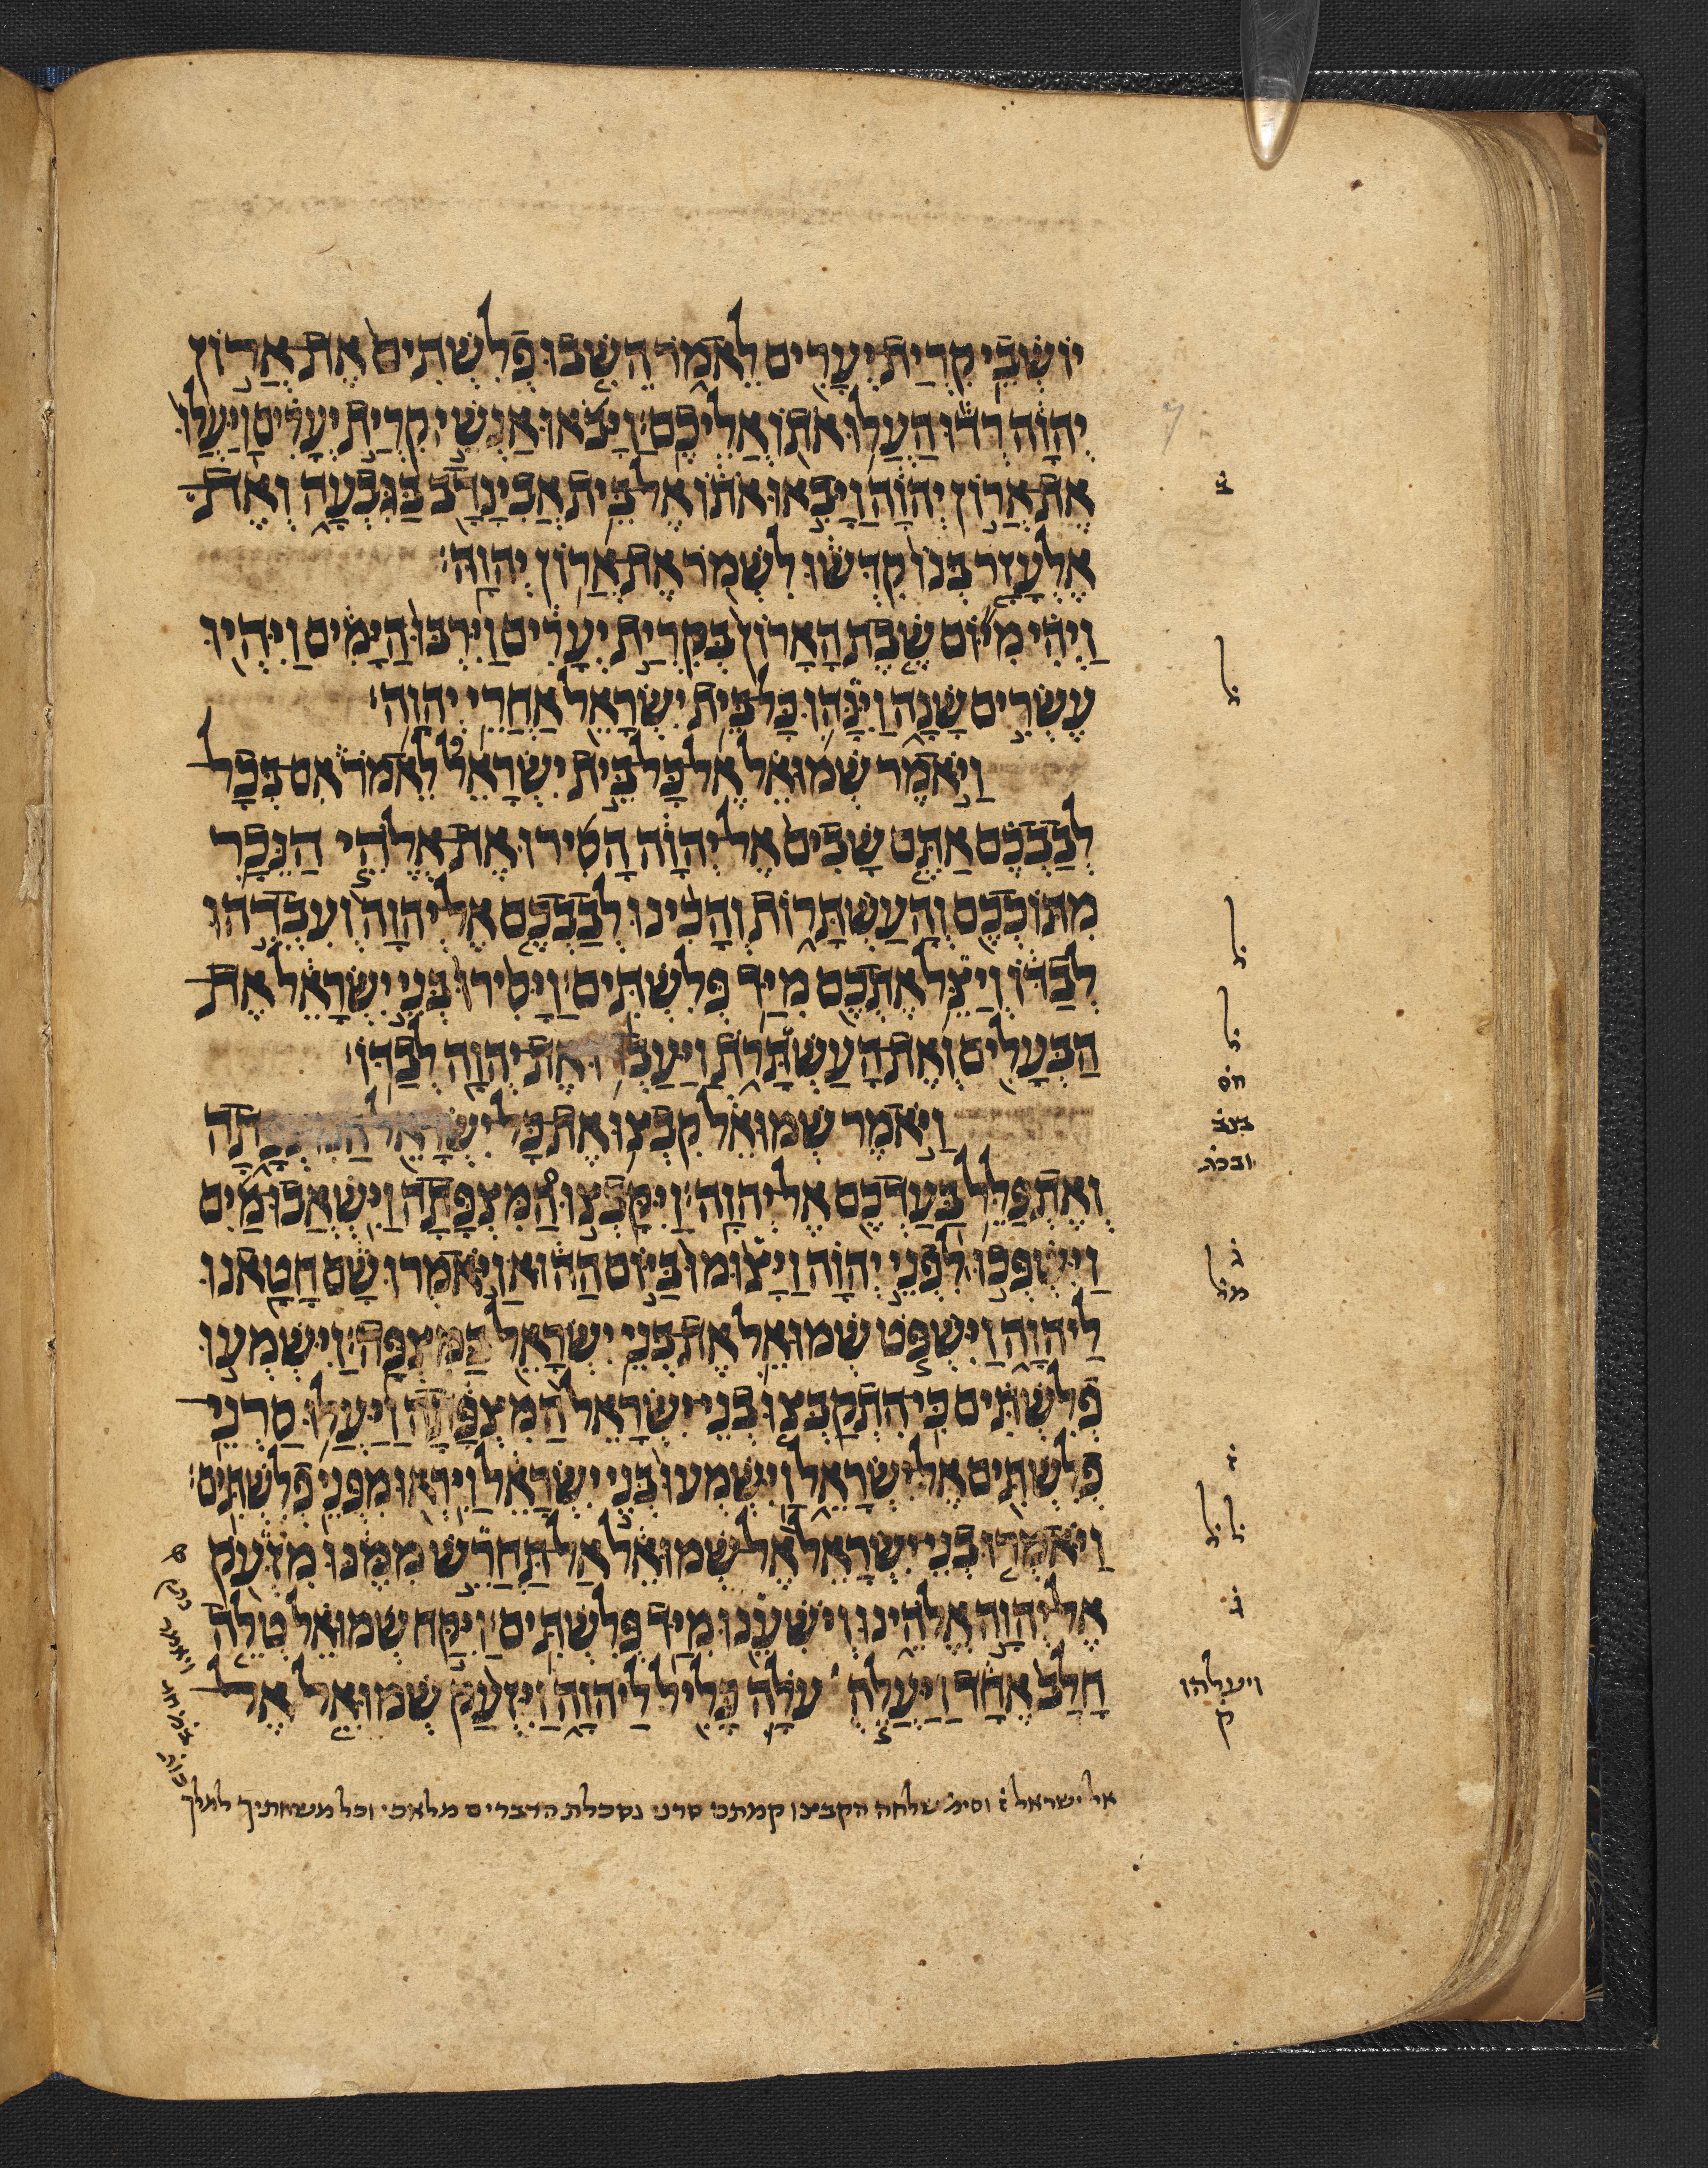 יוֹשְׁבֵי קִרְיַת יְעָרִים לֵאמֹר הֵשִׁבוּ פְלִשְׁתִּים אֶת אֲרוֹן
יְהוָה רְדוּ הַעֲלוּ אֹתוֹ אֲלֵיכֶם׃ וַיָּבֹאוּ אַנְשֵׁי קִרְיַת יְעָרִים וַיַּעֲלוּ
אֶת אֲרוֹן יְהוָה וַיָּבִאוּ אֹתוֹ אֶל בֵּית אֲבִינָדָב בַּגִּבְעָה וְאֶת
אֶלְעָזָר בְּנוֹ קִדְּשׁוּ לִשְׁמֹר אֶת אֲרוֹן יְהוָה׃
וַיְהִי מִיּוֹם שֶׁבֶת הָאָרוֹן בְּקִרְיַת יְעָרִים וַיִּרְבּוּ הַיָּמִים וַיִּהְיוּ
עֶשְׂרִים שָׁנָה וַיִּנָּהוּ כָּל בֵּית יִשְׂרָאֵל אַחֲרֵי יְהוָה׃
וַיֹּאמֶר שְׁמוּאֵל אֶל כָּל בֵּית יִשְׂרָאֵל לֵאמֹר אִם בְּכָל
לְבַבְכֶם אַתֶּם שָׁבִים אֶל יְהוָה הָסִירוּ אֶת אֱלֹהֵי הַנֵּכָר
מִתּוֹכְכֶם וְהָעַשְׁתָּרוֹת וְהָכִינוּ לְבַבְכֶם אֶל יְהוָה וְעִבְדֻהוּ
לְבַדּוֹ וְיַצֵּל אֶתְכֶם מִיַּד פְּלִשְׁתִּים׃ וַיָּסִירוּ בְּנֵי יִשְׂרָאֵל אֶת
הַבְּעָלִים וְאֶת הָעַשְׁתָּרֹת וַיַּעַבְדוּ אֶת יְהוָה לְבַדּוֹ׃
וַיֹּאמֶר שְׁמוּאֵל קִבְצוּ אֶת כָּל יִשְׂרָאֵל הַמִּצְפָּתָה
וְאֶתְפַּלֵּל בַּעַדְכֶם אֶל יְהוָה׃ וַיִּקָּבְצוּ הַמִּצְפָּתָה וַיִּשְׁאֲבוּ מַיִם
וַיִּשְׁפְּכוּ לִפְנֵי יְהוָה וַיָּצוּמוּ בַּיּוֹם הַהוּא וַיֹּאמְרוּ שָׁם חָטָאנוּ
לַיהוָה וַיִּשְׁפֹּט שְׁמוּאֵל אֶת בְּנֵי יִשְׂרָאֵל בַּמִּצְפָּה׃ וַיִּשְׁמְעוּ
פְלִשְׁתִּים כִּי הִתְקַבְּצוּ בְנֵי יִשְׂרָאֵל הַמִּצְפָּתָה וַיַּעֲלוּ סַרְנֵי
פְלִשְׁתִּים אֶל יִשְׂרָאֵל וַיִּשְׁמְעוּ בְּנֵי יִשְׂרָאֵל וַיִּרְאוּ מִפְּנֵי פְלִשְׁתִּים׃
וַיֹּאמְרוּ בְנֵי יִשְׂרָאֵל אֶל שְׁמוּאֵל אַל תַּחֲרֵשׁ מִמֶּנּוּ מִזְּעֹק
אֶל יְהוָה אֱלֹהֵינוּ וְיֹשִׁעֵנוּ מִיַּד פְּלִשְׁתִּים׃ וַיִּקַּח שְׁמוּאֵל טְלֵה
חָלָב אֶחָד וַיַּעֲלֶה עוֹלָה כָּלִיל לַיהוָה וַיִּזְעַק שְׁמוּאֵל אֶל
ב
ל
ל
ל
חס
ג
ז
ל ל
ג
ויעלהו
ק
אל ישראל ז וסימ שלחה הקבצו קמתם סרני נסכלת הדברים מלאכי וכל משחתיך למלך